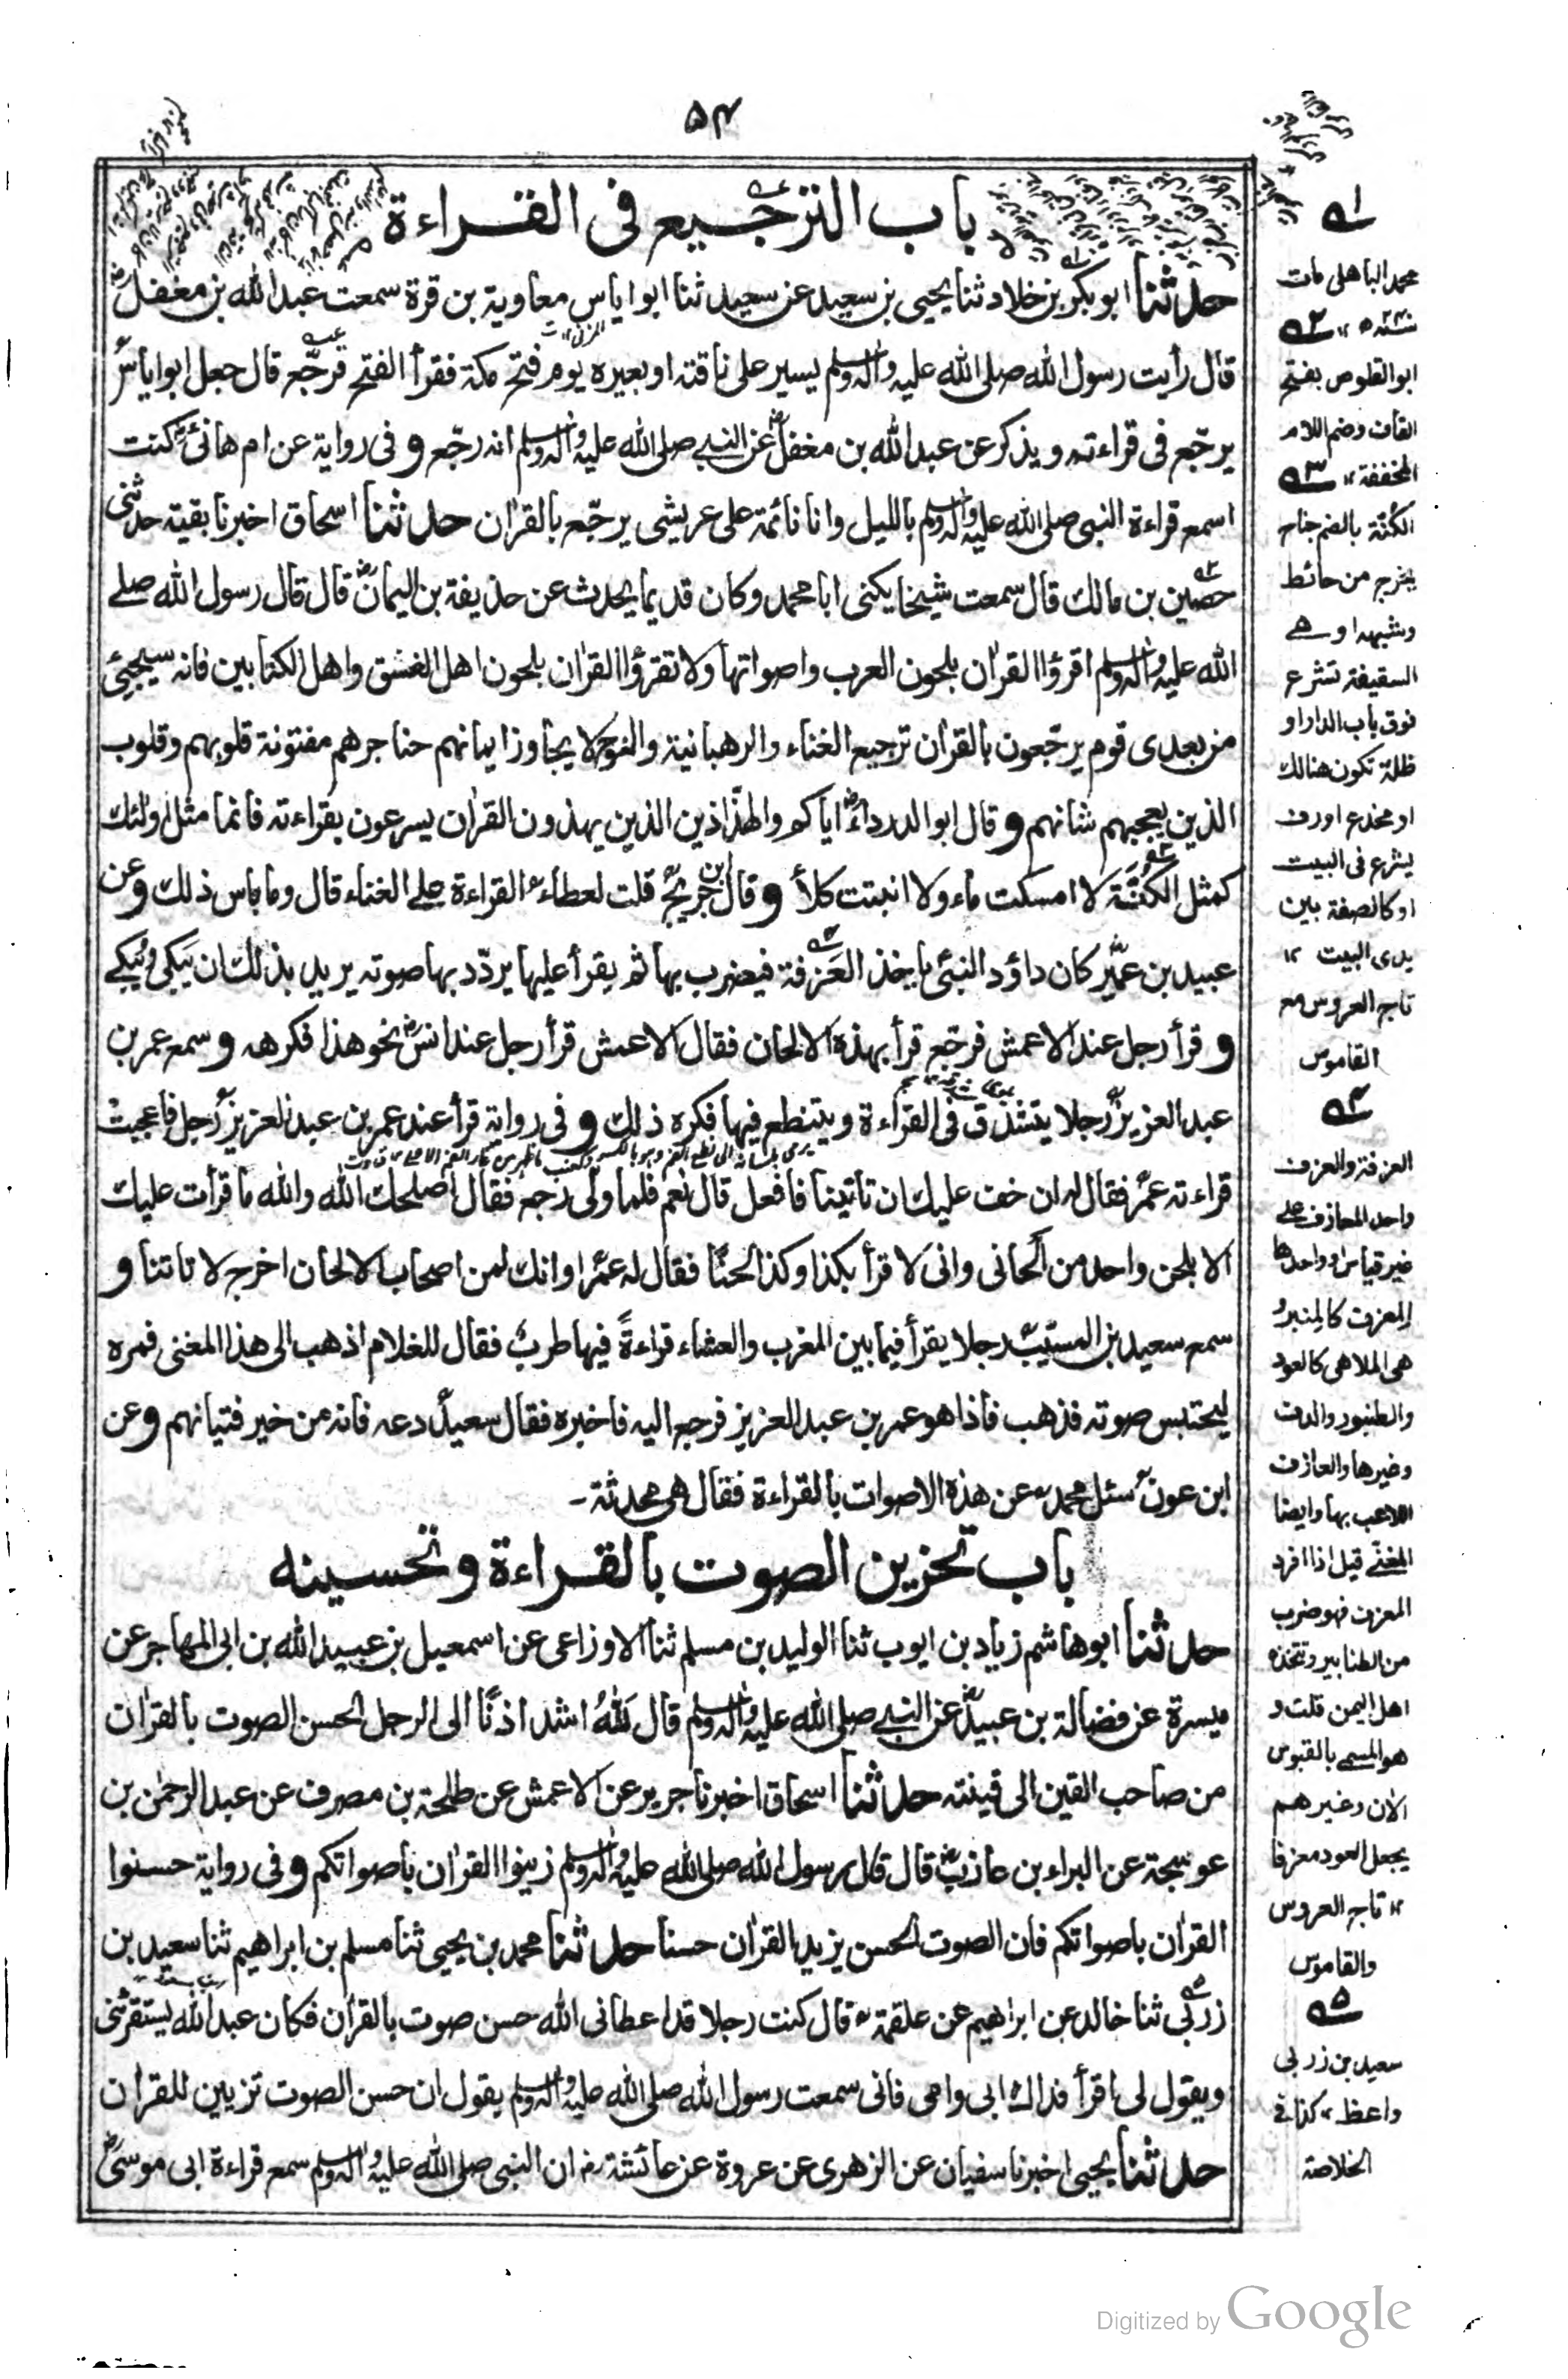 ۵۴
باب الترجيع فى القراءة
حدثنا ابو بكر بن خلاد ثنا يحيى بن سعيد عن سعيد ثنا ابو اياس معاوية بن قرة سمعت عبد الله بن مغفل
قال رأيت رسول الله صلى الله عليه واله وسلم يسير على ناقته او بعيره يوم فتح مكة فقرأ الفتح فرجّع قال جعل ابو اياس
يرجّع فى قراءته ويذكر عن عبد الله بن مغفل عن النبي صلى الله عليه واله وسلم انه رجّع و فى رواية عن ام هانئ كنت
اسمع قراءة النبى صلى الله عليه واله وسلم بالليل وانا نائمة على عريشى يرجّع بالقران حدثنا اسحاق اخبرنا بقية حدثنى
حصين بن مالك قال سمعت شيخا يكنى ابا محمد وكان قديما يحدث عن حذيفة بن اليمان قال قال رسول الله صلے
الله عليه واله وسلم اقرؤا القران بلحون العرب واصواتها ولا تقرؤا القران بلحون اهل الفسق واهل الكتابين فانه سيجيئ
من بعدى قوم يرجّعون بالقران ترجيع الغناء والرهبانية والنوح لا يجاوز ايمانهم حناجرهم مفتونة قلوبهم وقلوب
الذين يعجبهم شانهم و قال ابو الدرداء اياكم والهذّاذين الذين يهذون القران يسرعون بقراءته فانما مثل اولئك
كمثل الكُنَّة لا امسكت ماء ولا انبتت كلأ و قال ابن جريج قلت لعطاء القراءة علے الغناء قال وما باس ذلك و عن
عبيد بن عمير كان داؤد النبى ياخذ العزفة فيضرب بها ثم يقرأ عليها يردّد بها صوته يريد بذلك ان يَبكى ويُبكے
و قرأ رجل عند الاعمش فرجّع قرأ بهذه الالحان فقال الاعمش قرأ رجل عند انس نحو هذا فكرهه و سمع عمر بن
عبد العزيز رجلا يتشدق فى القراءة ويتنطع فيها فكره ذلك و فى رواية قرأ عند عمر بن عبد العزيز رجل فاعجبت
قراءته عمر فقال له ان خف عليك ان تاتينا فافعل قال نعم فلما ولى رجع فقال اصلحك الله والله ما قرأت عليك
الا بلحن واحد من الحانى وانى لا قرأ بكذا وكذا لحنًا فقال له عمر او انك لمن اصحاب الالحان اخرج لا تاتنا و
سمع سعيد بن المسيب رجلا يقرأ فيما بين المغرب والعشاء قراءةً فيها طرب فقال للغلام اذهب الى هذا المغنى فمره
ليحتبس صوته فذهب فاذا هو عمر بن عبد العزيز فرجع اليه فاخبره فقال سعيد دعه فانه من خير فتيانهم و عن
ابن عون سئل محمد عن هذه الاصوات بالقراءة فقال هى محدثة -
باب تحزين الصوت بالقراءة وتحسينه
حدثنا ابو هاشم زياد بن ايوب ثنا الوليد بن مسلم ثنا الاوزاعى عن اسمعيل بن عبيد الله بن ابى المهاجر عن
ميسرة عن فضالة بن عبيد عن النبي صلى الله عليه واله وسلم قال لَلّٰهُ اشد اذنًا الى الرجل الحسن الصوت بالقران
من صاحب القين الى قينته حدثنا اسحاق اخبرنا جرير عن الاعمش عن طلحة بن مصرف عن عبد الرحمٰن بن
عوسجة عن البراء بن عازب قال قال رسول الله صلى الله عليه واله وسلم زينوا القران باصواتكم و فى رواية حسنوا
القران باصواتكم فان الصوت الحسن يزيد القران حسنا حدثنا محمد بن يحيى ثنا مسلم بن ابراهيم ثنا سعيد بن
زربى ثنا خالد عن ابراهيم عن علقمة قال كنت رجلا قد اعطانى الله حسن صوت بالقران فكان عبد الله يستقرئنى
ويقول لى اقرأ فداك ابى وامى فانى سمعت رسول الله صلى الله عليه واله وسلم يقول ان حسن الصوت تزيين للقران
حدثنا يحيى اخبرنا سفيان عن الزهرى عن عروة عن عائشة رض ان النبى صلى الله عليه واله وسلم سمع قراءة ابى موسى
۱ے
محمد الباهلى مات
۲ے
ابو القلوص بفتح
القاف وضم اللام
المخففة ۱۲ ۳ے
الكُنّة بالضم جناح
يخرج من حائط
وشبهه او هے
السقيفة تشرع
فوق باب الدار او
ظلة تكون هنالك
او مخدع او رف
يشرع فى البيت
او كالصفة بين
يدى البيت ۱۲
تاج العروس مع
القاموس
۴ے
العزفة والعزف
واحد المعازف علے
غير قياس او واحدها
المعزف كالمنبر و
هى الملاهى كالعود
والطنبور والدف
وغيرها والعازف
اللاعب بها وايضا
المغنّے قيل اذا افرد
المعزف فهو ضرب
من الطنابير وتتخذه
اهل اليمن قلت و
هو المسمى بالقبوس
الان وغيرهم
يجعل العود معزفا
۱۲ تاج العروس
والقاموس
۵ے
سعيد بن زربى
واعظ ۱۲ كذا فى
الخلاصة
Digitized by Google